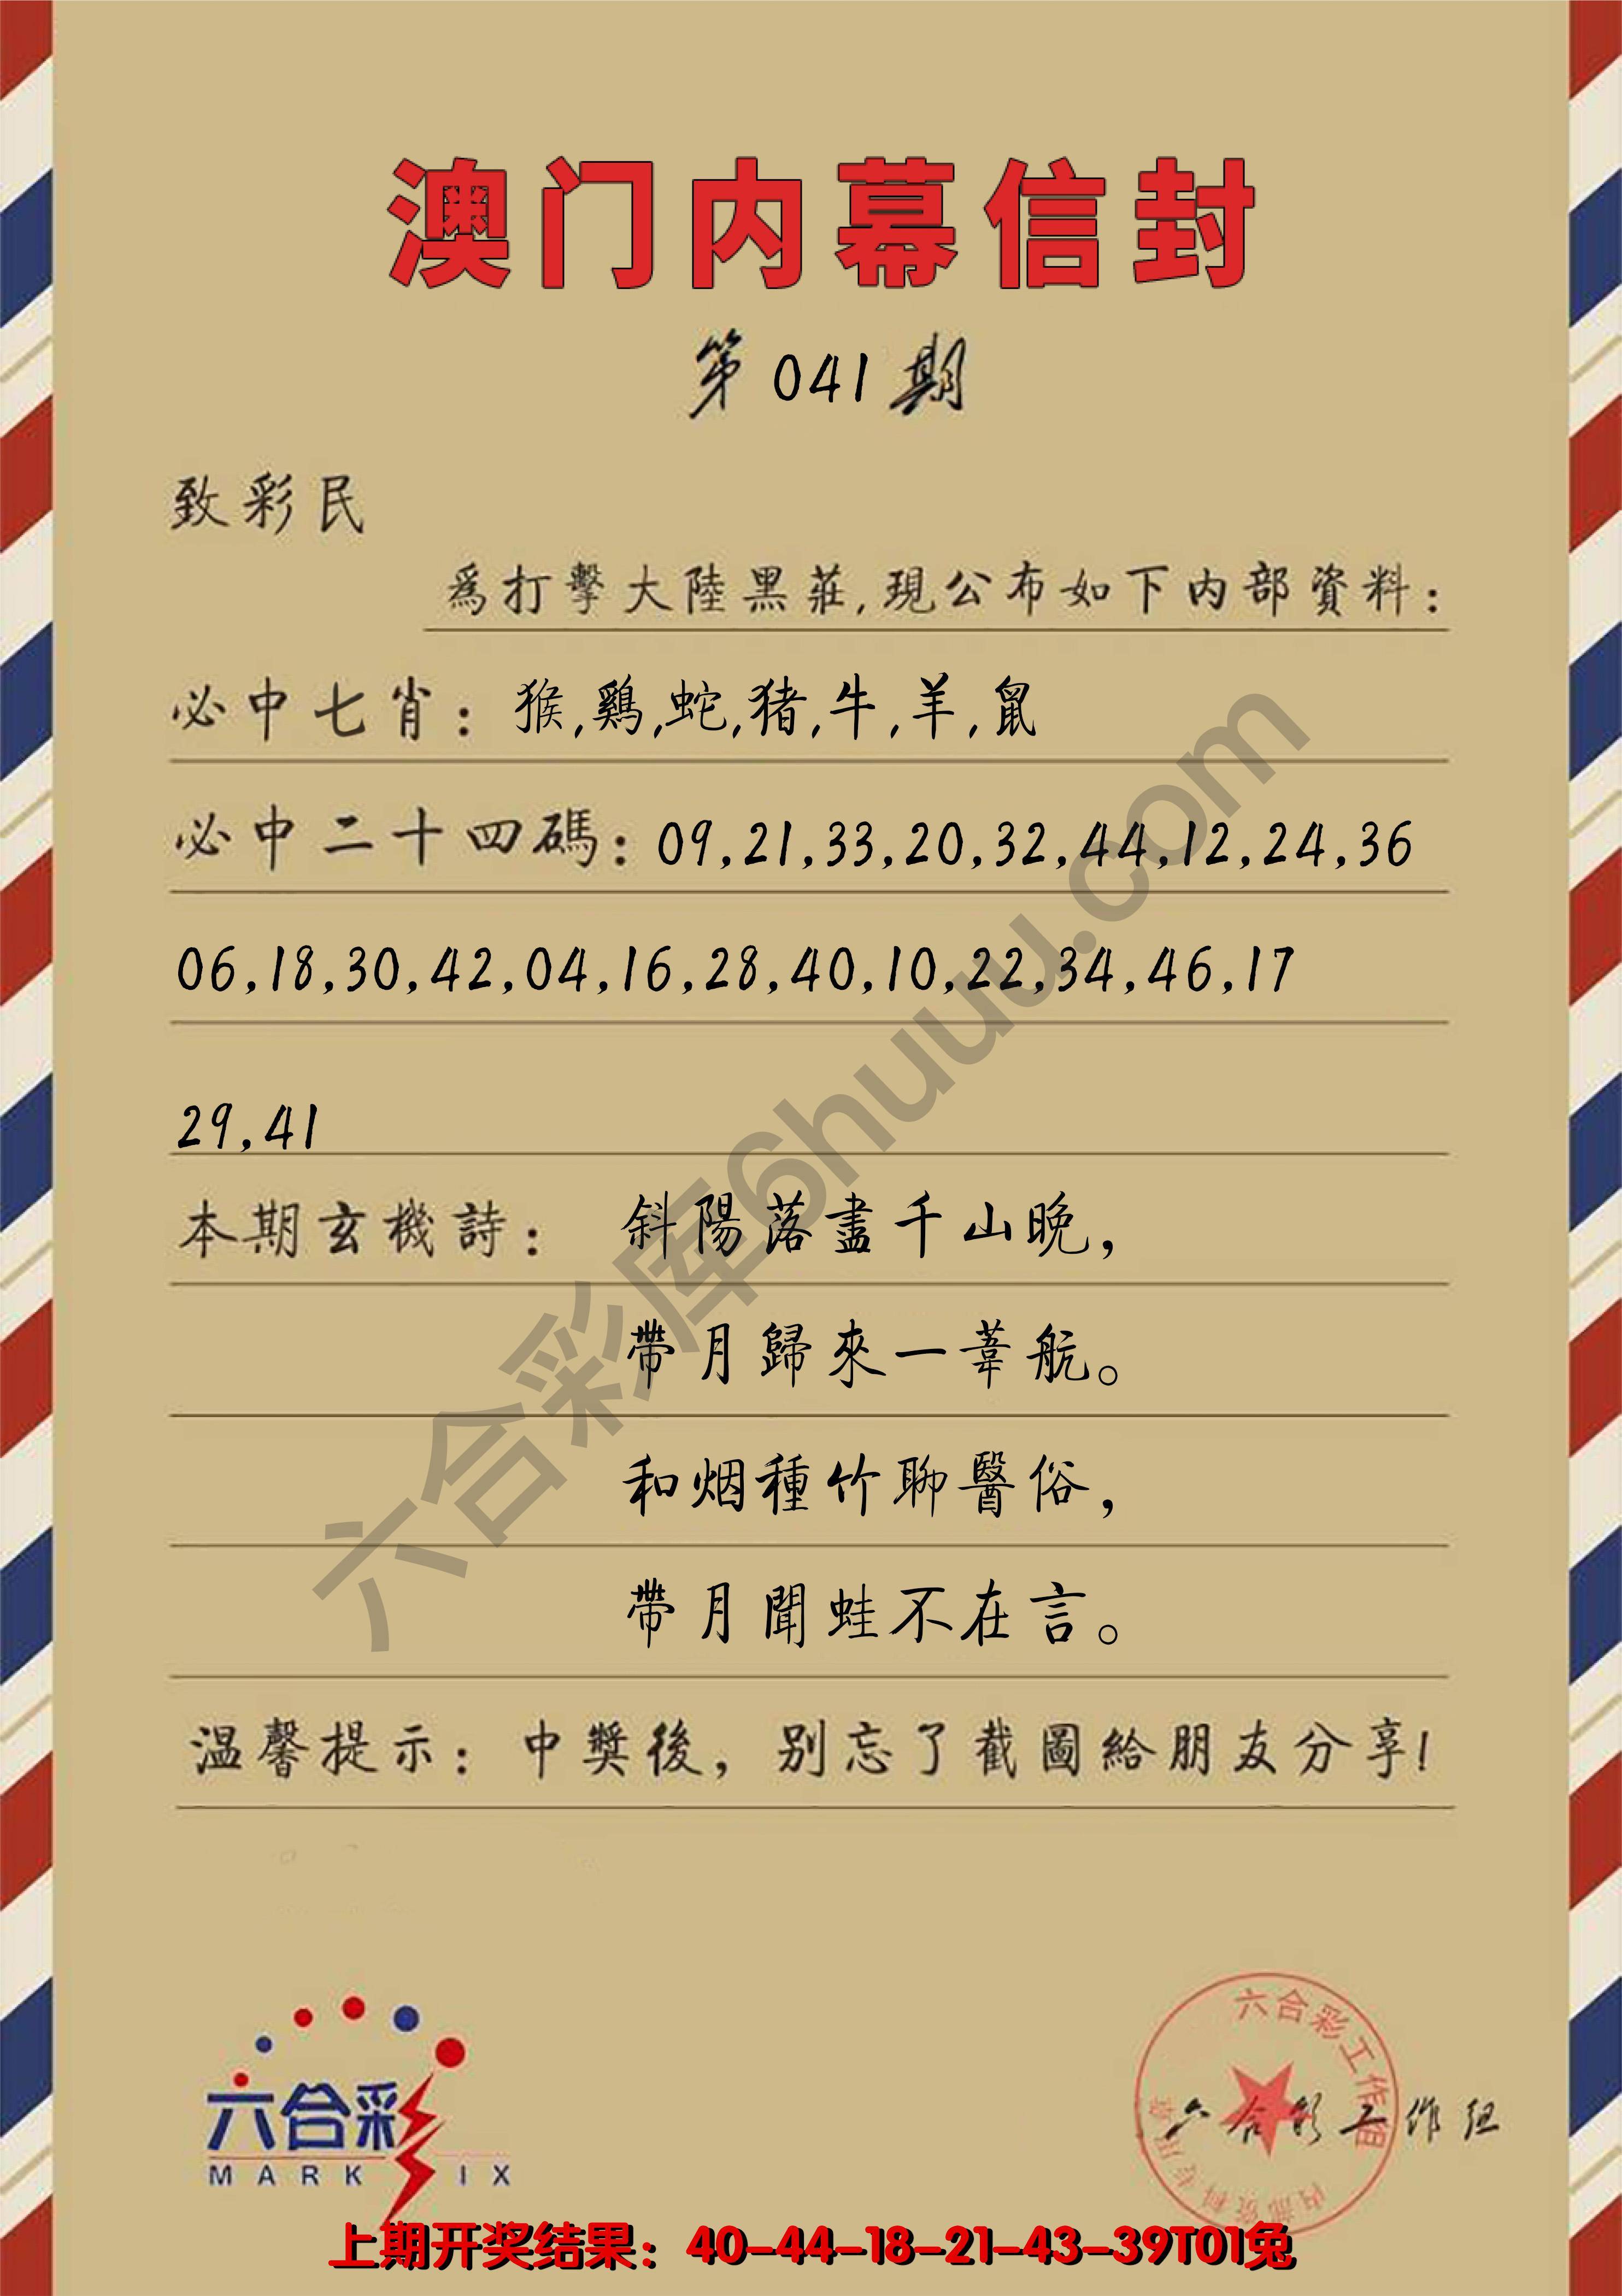 澳门内幕信封
第041期
致彩民
爲打擊大陸黑莊,現公布如下内部資料:
必中七肖: 猴,鷄,蛇,猪,牛,羊,鼠
必中二十四碼: 09,21,33,20,32,44,12,24,36
06,18,30,42,04,16,28,40,10,22,34,46,17
29,41
本期玄機詩: 斜陽落盡千山晚,
帶月歸來一葦航。
和烟種竹聊醫俗,
帶月聞蛙不在言。
温馨提示: 中獎後, 别忘了截圖給朋友分享!
六合彩库6huuu.com
六合彩
MARK IX
六合彩工作组
内部资料专用章
六合彩工作组
上期开奖结果: 40-44-18-21-43-39T01兔